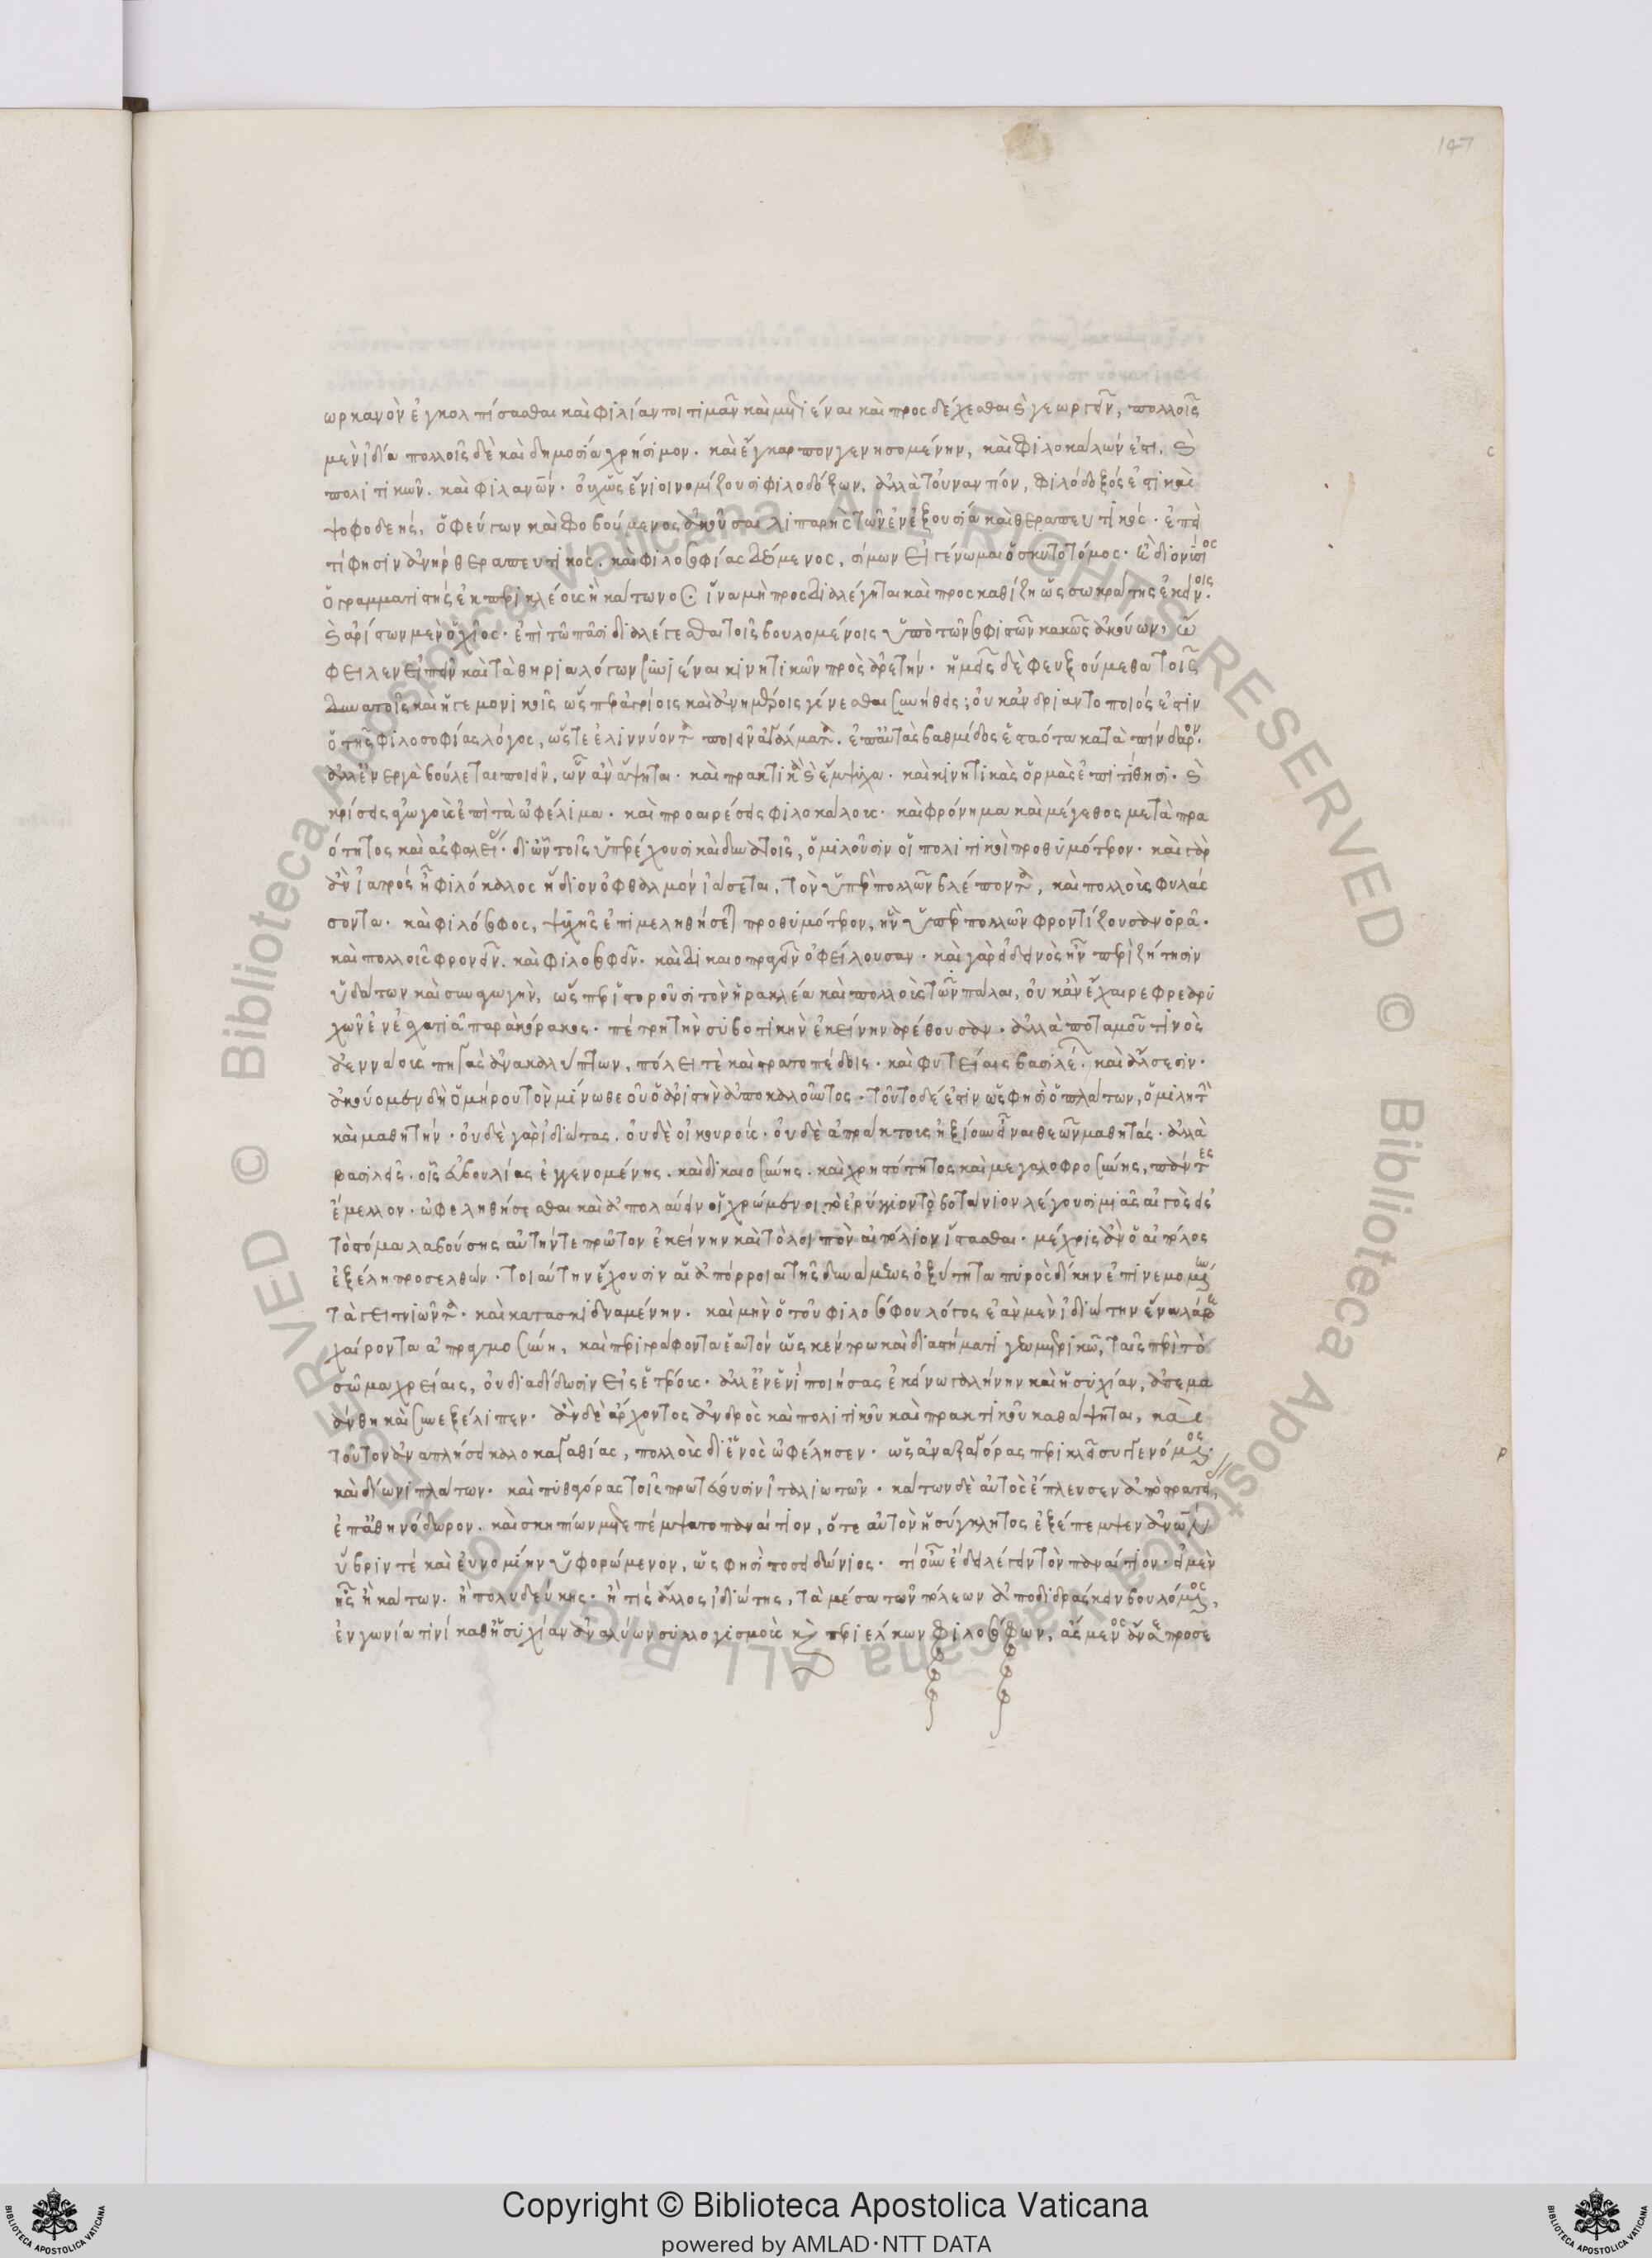 ωρκανὸν ἐγκολπίσασθαι καὶ φιλίαν τοι τιμᾶν καὶ μετιέναι καὶ προσδέχεσθαι καὶ γεωργεῖν, πολλοῖς
μὲν ἰδία πολλοῖς δὲ καὶ δημοσία χρήσιμον. καὶ ἔγκαρπον γενησομένην, καὶ φιλοκάλων ἐστι. καὶ
πολιτικῶν. καὶ φιλανῶν. οὐχ ὡς ἔνιοι νομίζουσι φιλοδόξων, ἀλλὰ τοὐναντίον, φιλόδοξός ἐστὶ καὶ
ψοφοδεής, ὁ φεύγων καὶ φοβούμενος ἀκοῦσαι λιπαρὴς τῶν ἐν ἐξουσία καὶ θεραπευτικός. ἐπεὶ
τί φησιν ἀνὴρ θεραπευτικός. καὶ φιλοσοφίας δεόμενος, σίμων εἰ γένωμαι ὁ σκυτοτόμος. ἢ διονύσιος
ὁ γραμματιστής ἐκ περικλέους ἢ κάτωνος. ἵνα μὴ προσδιαλέγηται καὶ προσκαθίζη ὡς σωκράτης ἐκείνοις.
καὶ ἀρίστων μὲν ὁ χῖος. ἐπὶ τῶ πᾶσι διαλέγεσθαι τοῖς βουλομένοις ὑπὸ τῶν σοφιστῶν κακῶς ἀκούων, ὤ
φειλεν εἰπεῖν καὶ τὰ θηρία λόγων συνιέναι κινητικῶν πρὸς ἀρετήν. ἡμεῖς δὲ φευξούμεθα τοῖς
δυνατοῖς καὶ ἡγεμονικοῖς ὡσπερ ἀγρίοις καὶ ἀνημέροις γίνεσθαι συνήθεις; οὐκ ἀνδριαντοποιός ἐστιν
ὁ τῆς φιλοσοφίας λόγος, ὥστε ἐλιννύοντα ποιεῖν ἀγάλματα. ἐπ᾽ αὐτὰς βαθμίδος ἑσταότα κατὰ πίνδαρον.
ἀλλ᾽ ἐνεργὰ βούλεται ποιεῖν, ὧν ἂν ἅψηται. καὶ πρακτικὰ καὶ ἔμψυχα. καὶ κινητικὰς ὁρμὰς ἐπιτίθησι. καὶ
κρίσεις ἀγωγοὺς ἐπὶ τὰ ὠφέλιμα. καὶ προαιρέσεις φιλοκάλους. καὶ φρόνημα καὶ μέγεθος μετὰ πρα
ότητος καὶ ἀσφαλεί. δι᾽ ὧν τοῖς ὑπερέχουσι καὶ δυνατοῖς, ὁμιλοῦσιν οἱ πολιτικοὶ προθυμότερον. καὶ γὰρ
ἂν ἰατρός ἢ φιλόκαλος ἥδιον ὀφθαλμὸν ἰάσεται, τὸν ὑπὲρ πολλῶν βλέποντα, καὶ πολλοὺς φυλάσ
σοντα. καὶ φιλόσοφος, ψυχῆς ἐπιμεληθήσεται προθυμότερον, ἣν ὑπὲρ πολλῶν φροντίζουσαν ὁρᾶ.
καὶ πολλοῖς φρονεῖν. καὶ φιλοσοφεῖν. καὶ δικαιοπραγεῖν ὀφείλουσαν. καὶ γὰρ εἰ δεινὸς ἦν περὶ ζήτησιν
ὑδάτων καὶ συναγωγὴν, ὥσπερ ἱστοροῦσι τὸν ἡρακλέα καὶ πολλοὺς τῶν πάλαι, οὐκ ἂν ἔχαιρε φρεωρύ
χῶν ἐν ἐσχατιᾶ παρὰ κόρακος. πέτρη τὴν συβοτικὴν ἐκείνην ἀρέθουσαν. ἀλλὰ ποταμοῦ τινὸς
ἀεννάους πηγὰς ἀνακαλύπτων, πόλει τὲ καὶ στρατοπέδοις. καὶ φυτείαις βασιλέ. καὶ ἄλσεσιν.
ἀκούομεν δὴ ὁμήρου τὸν μίνω θεοῦ ὀαριστὴν ἀποκαλοῦντος. τοῦτο δέ ἐστιν ὡς φησὶ ὁ πλάτων, ὁμιλητὴν
καὶ μαθητήν. οὐδὲ γὰρ ἰδιώτας. οὐδὲ οἰκουρούς. οὐδὲ ἀπράκτους ἠξίουν εἶναι θεῶν μαθητάς. ἀλλὰ
βασιλεῖς. οἷς εὐβουλίας ἐγγενομένης. καὶ δικαιοσύνης. καὶ χρηστότητος καὶ μεγαλοφροσύνης, πάντες
ἔμελλον. ὠφεληθήσεσθαι καὶ ἀπολαύειν οἱ χρώμενοι. τὸ ἐρύγγιον τὸ βοτάνιον λέγουσι μιᾶς αἰγὸς εἰς
τὸ στόμα λαβούσης αὐτήν τε πρῶτον ἐκείνην καὶ τὸ λοιπὸν αἰπόλιον ἵστασθαι. μέχρις ἂν ὁ αἰπόλος
ἐξέλη προσελθών. τοιαύτην ἔχουσιν αἱ ἀπόρροιαι τῆς δυνάμεως ὀξύτητα πυρὸς δίκην ἐπινεμομένην
τὰ γειτνιῶντα. καὶ κατασκιδναμένην. καὶ μὴν ὁ τοῦ φιλοσόφου λόγος ἐὰν μὲν ἰδιώτην ἕνα λάβη
χαίροντα ἀπραγμοσύνη, καὶ περιγράφοντα ἑαυτόν ὡς κέντρω καὶ διαστήματι γεωμετρικῶ, ταῖς περὶ τὸ
σῶμα χρείαις, οὐ διαδίδωσιν εἰς ἑτέρους. ἀλλ᾽ ἐν ἑνὶ ποιήσας ἐκείνω γαλήνην καὶ ἡσυχίαν, ἀπεμα
ράνθη καὶ συνεξέλιπεν. ἂν δὲ ἄρχοντος ἀνδρὸς καὶ πολιτικοῦ καὶ πρακτικοῦ καθάψηται, καὶ
τοῦτον ἀναπλήση καλοκαγαθίας, πολλοὺς δι᾽ ἑνὸς ὠφέλησεν. ὡς ἀναξαγόρας περικλεῖ συγγενόμενος.
καὶ δίωνι πλάτων. καὶ πυθαγόρας τοῖς πρωτεύουσιν ἰταλιωτῶν. κάτων δὲ αὐτὸς ἔπλευσεν ἀπὸ στρατεί,
ἐπ᾽ ἀθηνόδωρον. καὶ σκηπίων μετεπέμψατο παναίτιον, ὅτε αὐτὸν ἡ σύγκλητος ἐξέπεμψεν ἀνῶν
ὕβριν τέ καὶ εὐνομίην ὑφορώμενον, ὡς φησὶ ποσειδώνιος. τί οὖν ἔδει λέγειν τὸν παναίτιον. εἰ μὲν
ἦς ἢ κάτων. ἢ πολυδεύκης. ἢ τὶς ἄλλος ἰδιώτης, τὰ μέσα τῶν πόλεων ἀποδιδράσκειν βουλόμενος,
ἐν γωνία τινί καθ᾽ ἡσυχίαν ἀναλύων συλλογισμοὺς καὶ περιέλκων φιλοσόφων, ἄσμενος ἄν σε προσε